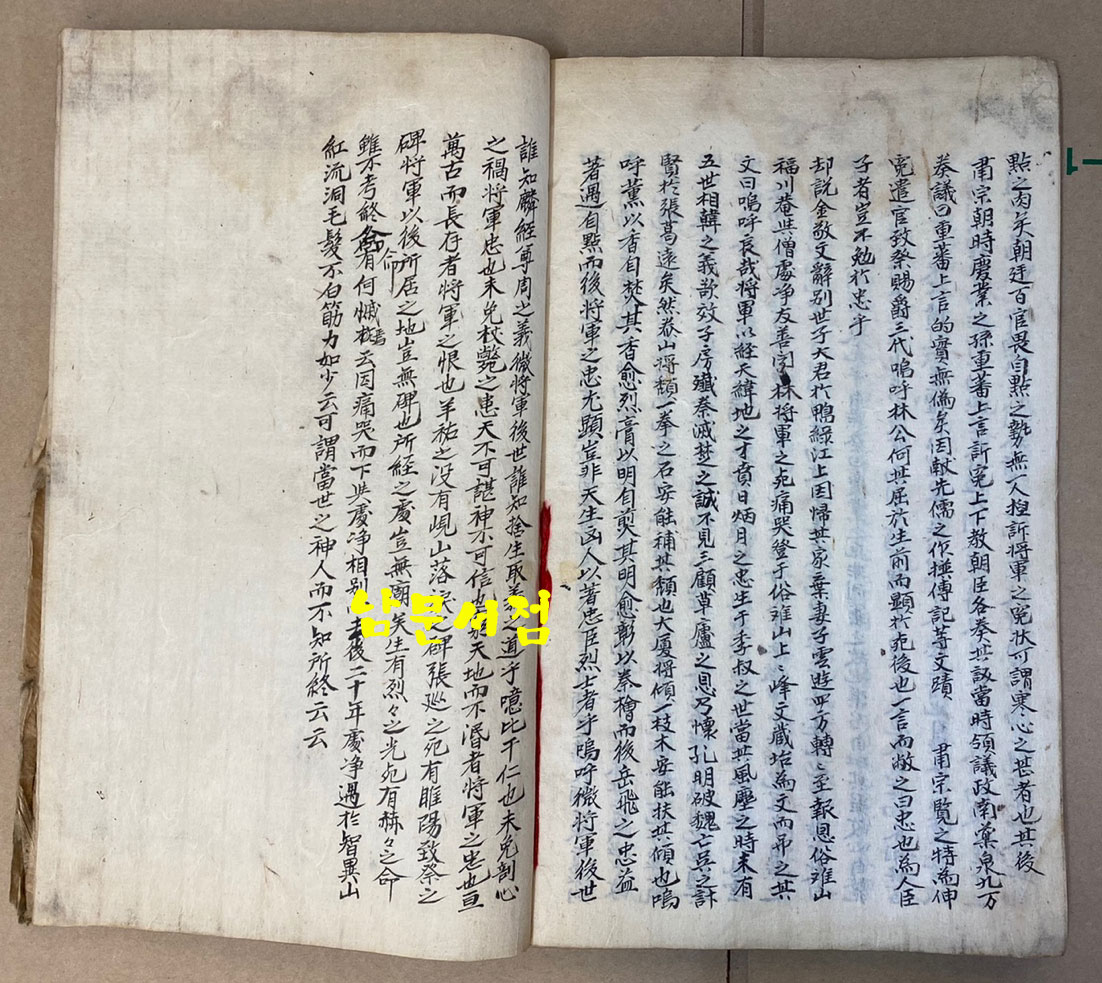 點之肉矣朝廷百官畏自點之勢無一人控訴將軍之寃狀可謂寒心之甚者也其後
肅宗朝時慶業之孫重蕃上言訴寃上下敎朝臣各奏其議當時領議政南藥泉九万
奏議曰重蕃上言的實無僞矣因獻先儒之作 傳記等文蹟 肅宗覽之特為伸
寃遣官致祭賜爵三代嗚呼林公何其屈於生前而顯於死後也一言而蔽之曰忠也為人臣
子者豈不勉於忠乎
却說金敬文辭別世子大君於鴨綠江上因歸其家棄妻子雲遊四方轉〻至報恩俗離山
福川菴與僧處净友善 林將軍之死痛哭登于俗離山上〻峰文藏坮為文而吊之其
文曰嗚呼哀哉將軍以経天緯地之才賁日炳月之忠生于季叔之世當其風塵之時未有
五世相韓之義欲效子房殲秦滅楚之誠不見三顧草廬之恩乃懷孔明破魏亡吳之計
賢於張葛遠矣然泰山將頹一拳之石安能補其頹也大廈將傾一枝木安能扶其傾也嗚
呼薰以香自焚其香愈烈膏以明自煎其明愈彰以秦檜而後岳飛之忠益
著遇自點而後將軍之忠尤顯豈非天生凶人以著忠臣烈士者乎嗚呼微將軍後世
誰知麟経尊周之義微將軍後世誰知捨生取義之道乎噫比干仁也未免剖心
之禍將軍忠也未免杖斃之患天不可諶神不可信也 天地而不泯者將軍之忠也亘
萬古而長存者將軍之恨也羊祜之没有峴山落淚之碑張巡之死有睢陽致祭之
碑將軍以後所居之地豈無碑也所経之處豈無廟矣生有烈〻之光死有赫〻之命
雖不考終命有何憾焉云因痛哭而下與處净相別而去後二十年處净遇於智異山
紅流洞毛髮不白筋力如少云可謂當世之神人而不知所終云云
남문서점